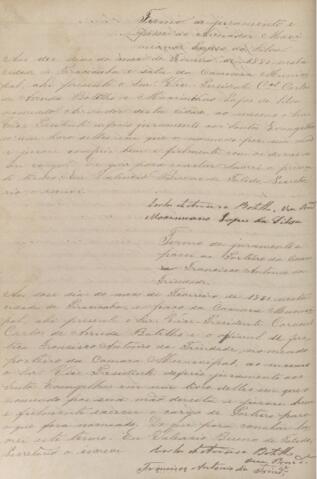 Termo de juramento e
posse do arruador Maxi
miano Lopes da Silva
Aos dez dias do mez de Janeiro de 1881 nesta
cidade de Piracicaba e sala da Camara Munici
pal, ahi presente o Snr. Vice Presidente Cel. Carlos
de Arruda Botelho e Maximiano Lopes da Silva
nomeado arruador desta cidade, ao mesmo o Snr.
Vice Presidente deferio juramento aos Santos Evangelhos
em um livro delles em que o
e jurou cumprir bem e fielmente com os deveres
do seu cargo. E para constar lavrei o presen
te termo. Eu Valencio Bueno de Toledo, Secreta
rio o escrevi.
Carlos de Arruda Botelho
Maximiano Lopes da Silva
Termo de juramento e
posse do Porteiro da Camara
Francisco Antonio da
Trindade.
Aos dias do mez de Fevereiro de 1881 nesta
cidade de Piracicaba, e paço da Camara Munici
pal, ahi presente o Snr. Vice Presidente Coronel
Carlos de Arruda Botelho e o
Francisco Antonio da Trindade, nomeado
porteiro da Camara Municipal, ao mesmo
o Snr. Vice Presidente deferio juramento aos
Santos Evangelhos em um livro delles em que o
nomeado poz sua mão direita e jurou bem
e fielmente exercer o cargo de Porteiro para
o que fora nomeado. Do que para constar la
vrei este termo. Eu Valencio Bueno de Toledo,
Secretario o escrevi
Carlos de Arruda Botelho
Francisco Antonio da Trind.